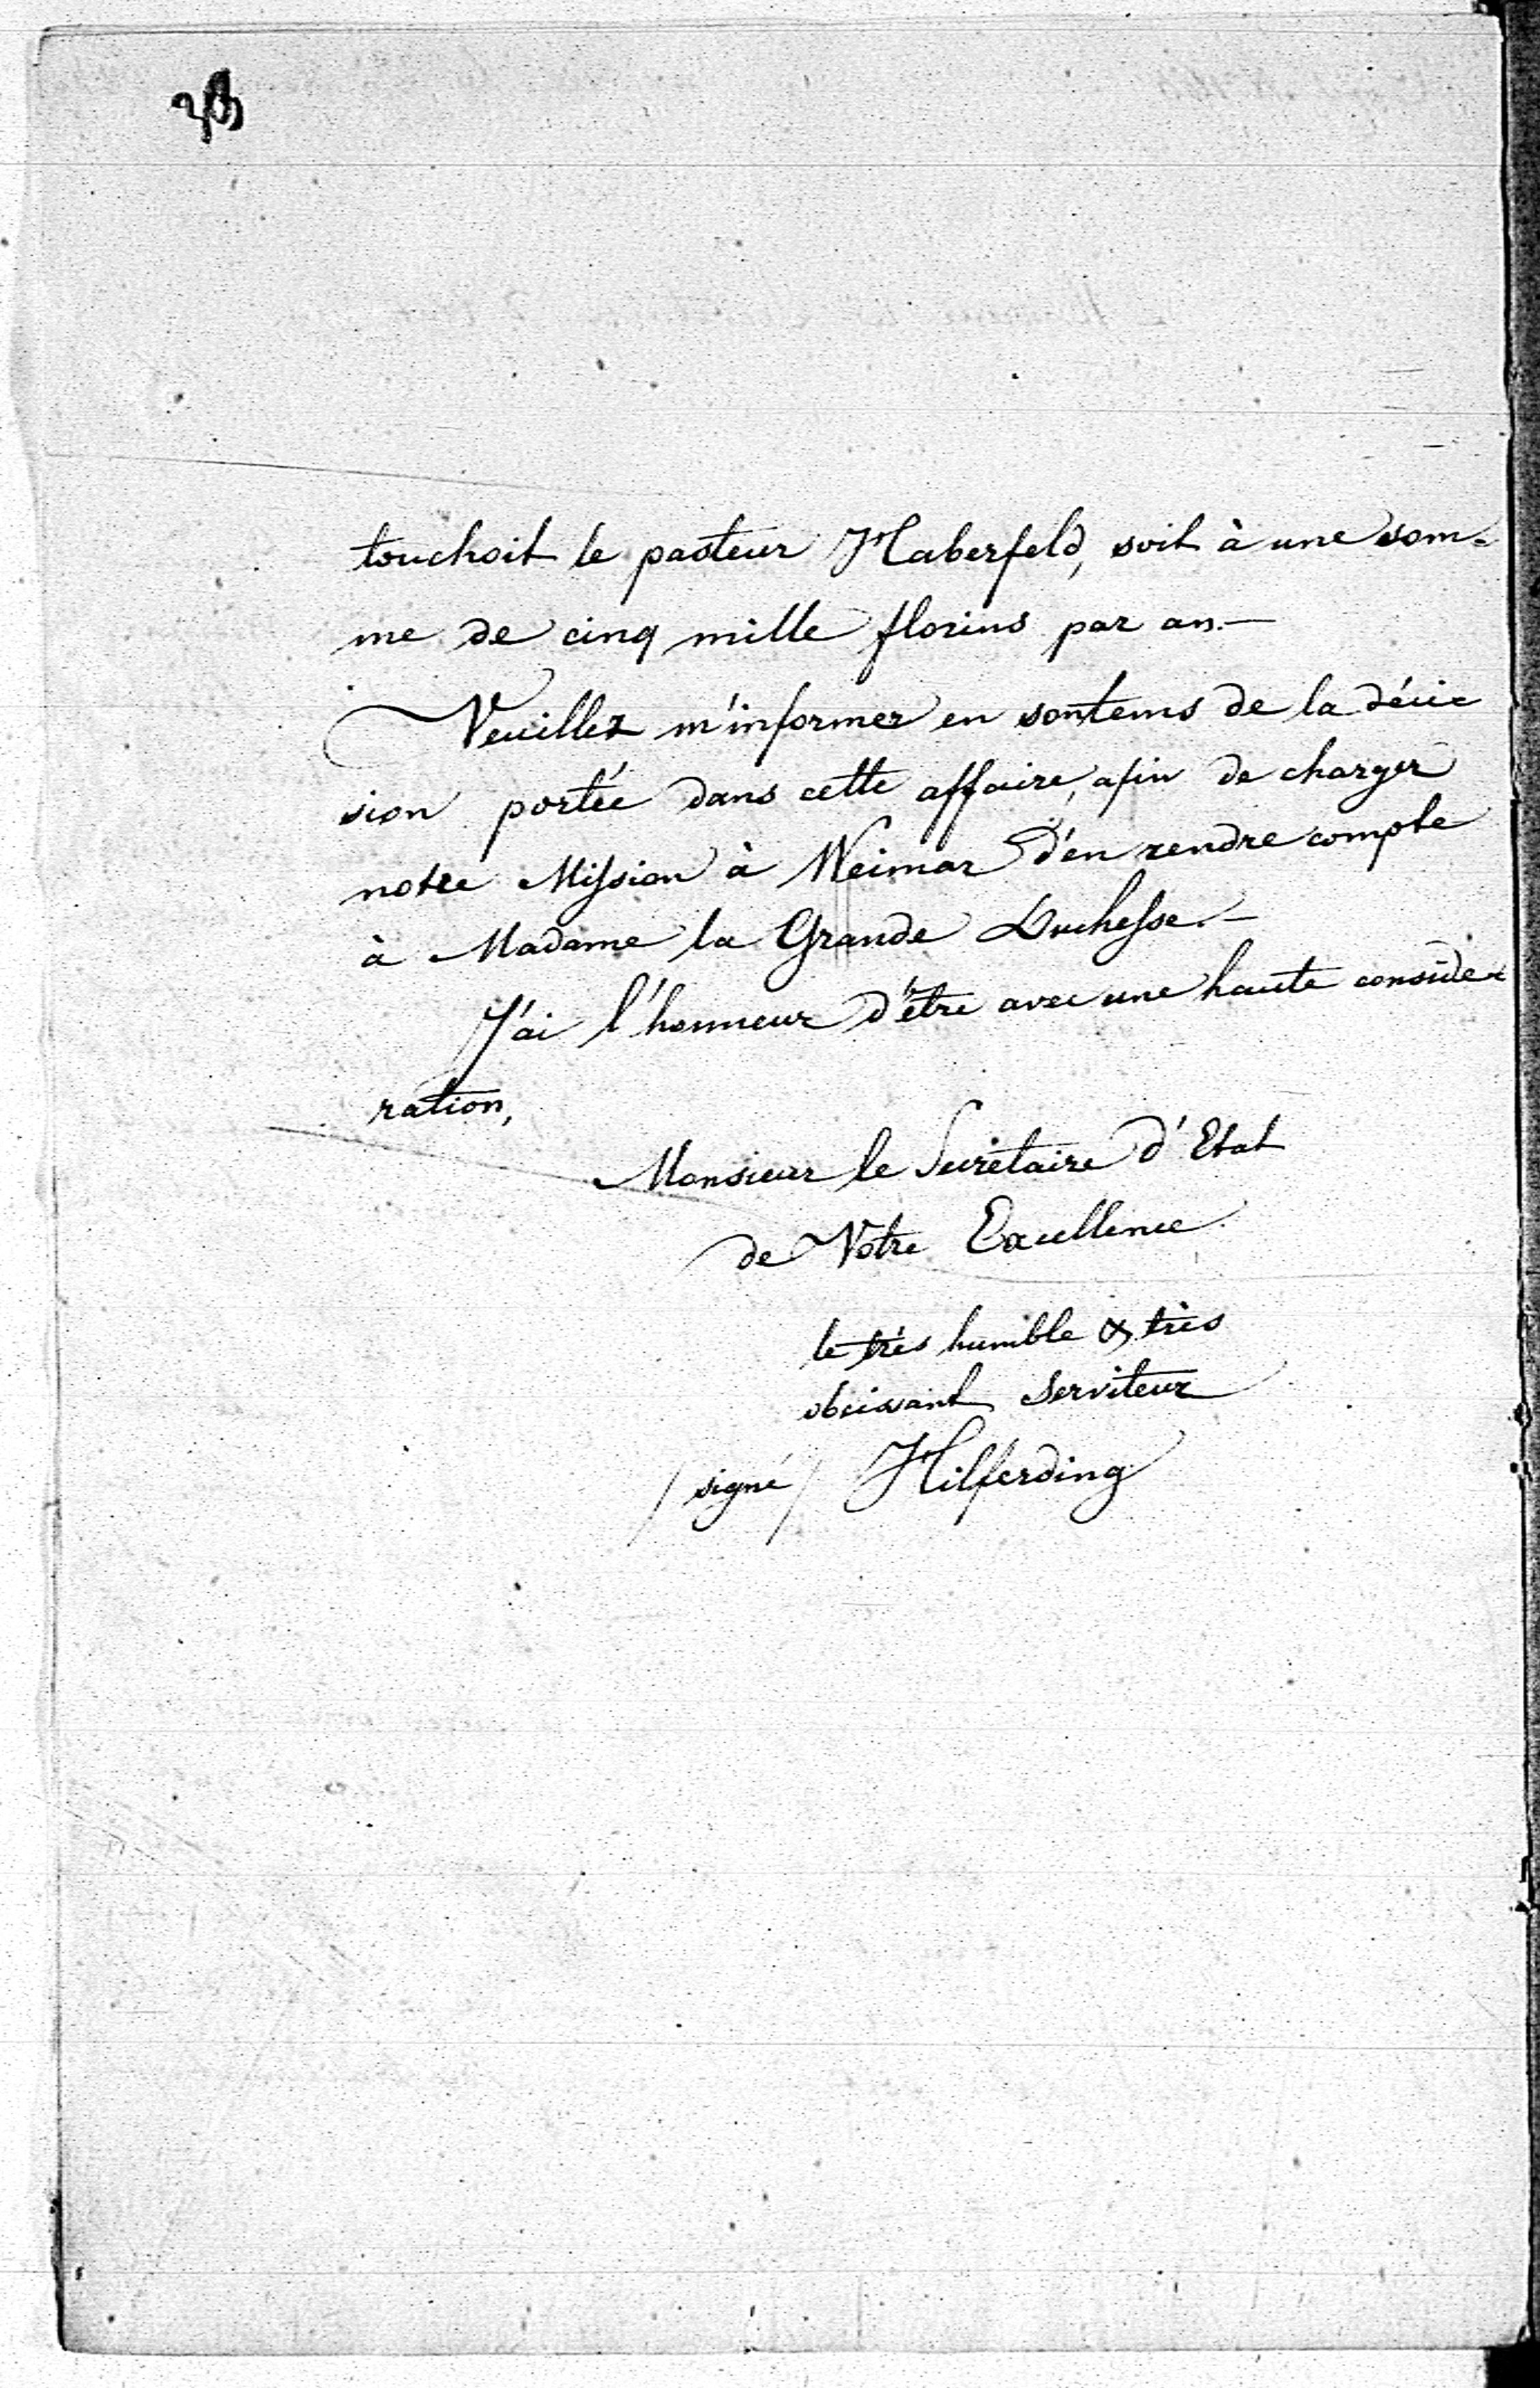 touchoit le pasteur Haberfeld, soit à une som-
me de cinq mille florins par an.—
Veuillez m'informer en sontems de la déci-
sion portée dans cette affaire, afin de charger
notre Mission à Weimar d'en rendre compte
à Madame la Grande Duchesse.—
J'ai l'honneur d'être avec une haute considé-
ration,
Monsieur le Secretaire d'Etat
de Votre Excellence
le très humble & très
obeissant Serviteur
/signé/ Hilferding